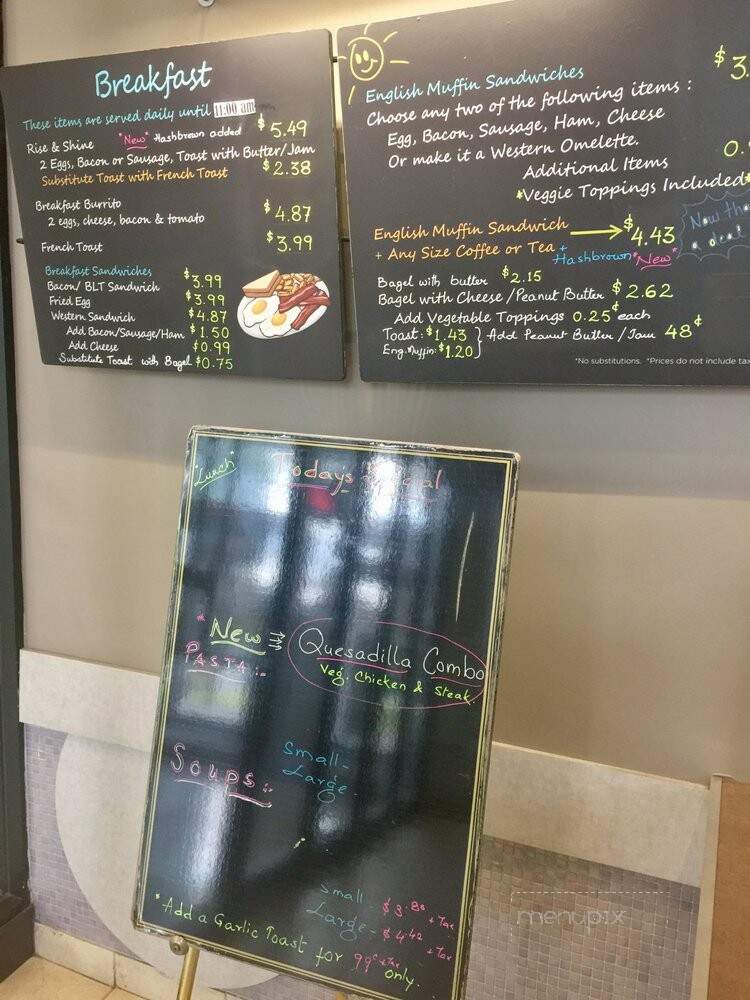 Breakfast
These items are served daily until 11:00 am
Rise & Shine *New* Hashbrown added $5.49
2 Eggs, Bacon or Sausage, Toast with Butter/Jam
Substitute Toast with French Toast $2.38
Breakfast Burrito
2 eggs, cheese, bacon & tomato $4.87
French Toast $3.99
Breakfast Sandwiches
Bacon/ BLT Sandwich $3.99
Fried Egg $3.99
Western Sandwich $4.87
Add Bacon/Sausage/Ham $1.50
Add Cheese $0.99
Substitute Toast with Bagel $0.75
English Muffin Sandwiches $3.
Choose any two of the following items :
Egg, Bacon, Sausage, Ham, Cheese
Or make it a Western Omelette.
Additional Items 0.
*Veggie Toppings Included*
English Muffin Sandwich $4.43
+ Any Size Coffee or Tea +
Hashbrown *New*
Now tha
a deal
Bagel with butter $2.15
Bagel with Cheese /Peanut Butter $2.62
Add Vegetable Toppings 0.25¢ each
Toast: $1.43 } Add Peanut Butter /Jam 48¢
Eng.Muffin: $1.20
*No substitutions. *Prices do not include tax
"Lunch" Todays Special
*New
Quesadilla Combo
Veg. Chicken & Steak.
PASTA:-
Soups:-
Small-
Large-
Small - $3.88 + Tax
Large - $4.42 + Tax
*Add a Garlic Toast for 99¢ +Tax only.
menupix